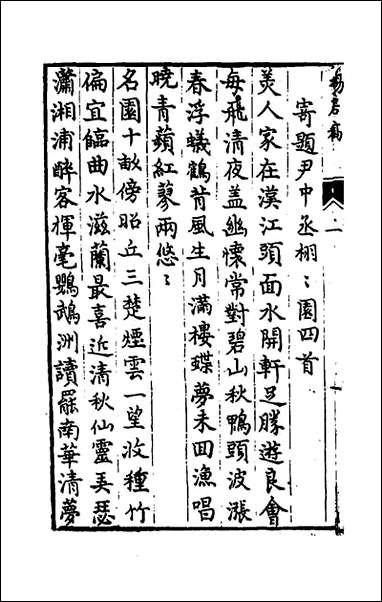 寄題尹中丞栩〻園四首
美人家在漢江頭面水開軒足勝遊良會
每飛清夜盖幽懷常對碧山秋鴨頭波漲
春浮蟻鶴背風生月滿樓蝶夢未回漁唱
曉青蘋紅蓼兩悠〻
名園十畝傍昭丘三楚煙雲一望收種竹
偏宜臨曲水滋蘭最喜近清秋仙靈美瑟
瀟湘浦醉客揮毫鸚鵡洲讀罷南華清夢